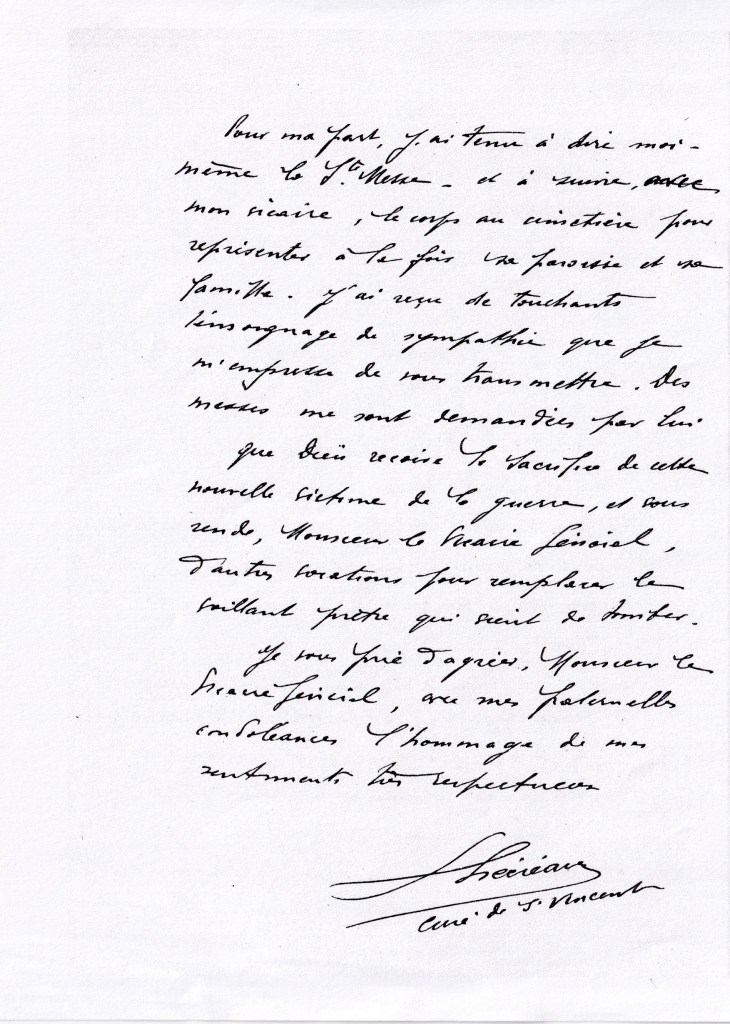 Pour ma part, j'ai tenu à dire moi-
même la Ste Messe - et à suivre, avec
mon vicaire, le corps au cimetière pour
représenter à la fois sa paroisse et sa
famille. J'ai reçu de touchants
témoignage de sympathie que je
m'empresse de vous transmettre. Des
messes me sont demandées par lui
que Dieu reçoive le sacrifice de cette
nouvelle victime de la guerre, et vous
rende, Monsieur le Vicaire Général,
d'autres vocations pour remplacer le
vaillant prêtre qui vient de tomber.
Je vous prie d'agréer, Monsieur le
Vicaire Général, avec mes
condoléances l'hommage de mes
sentiments très respectueux
Curé de St Vincent